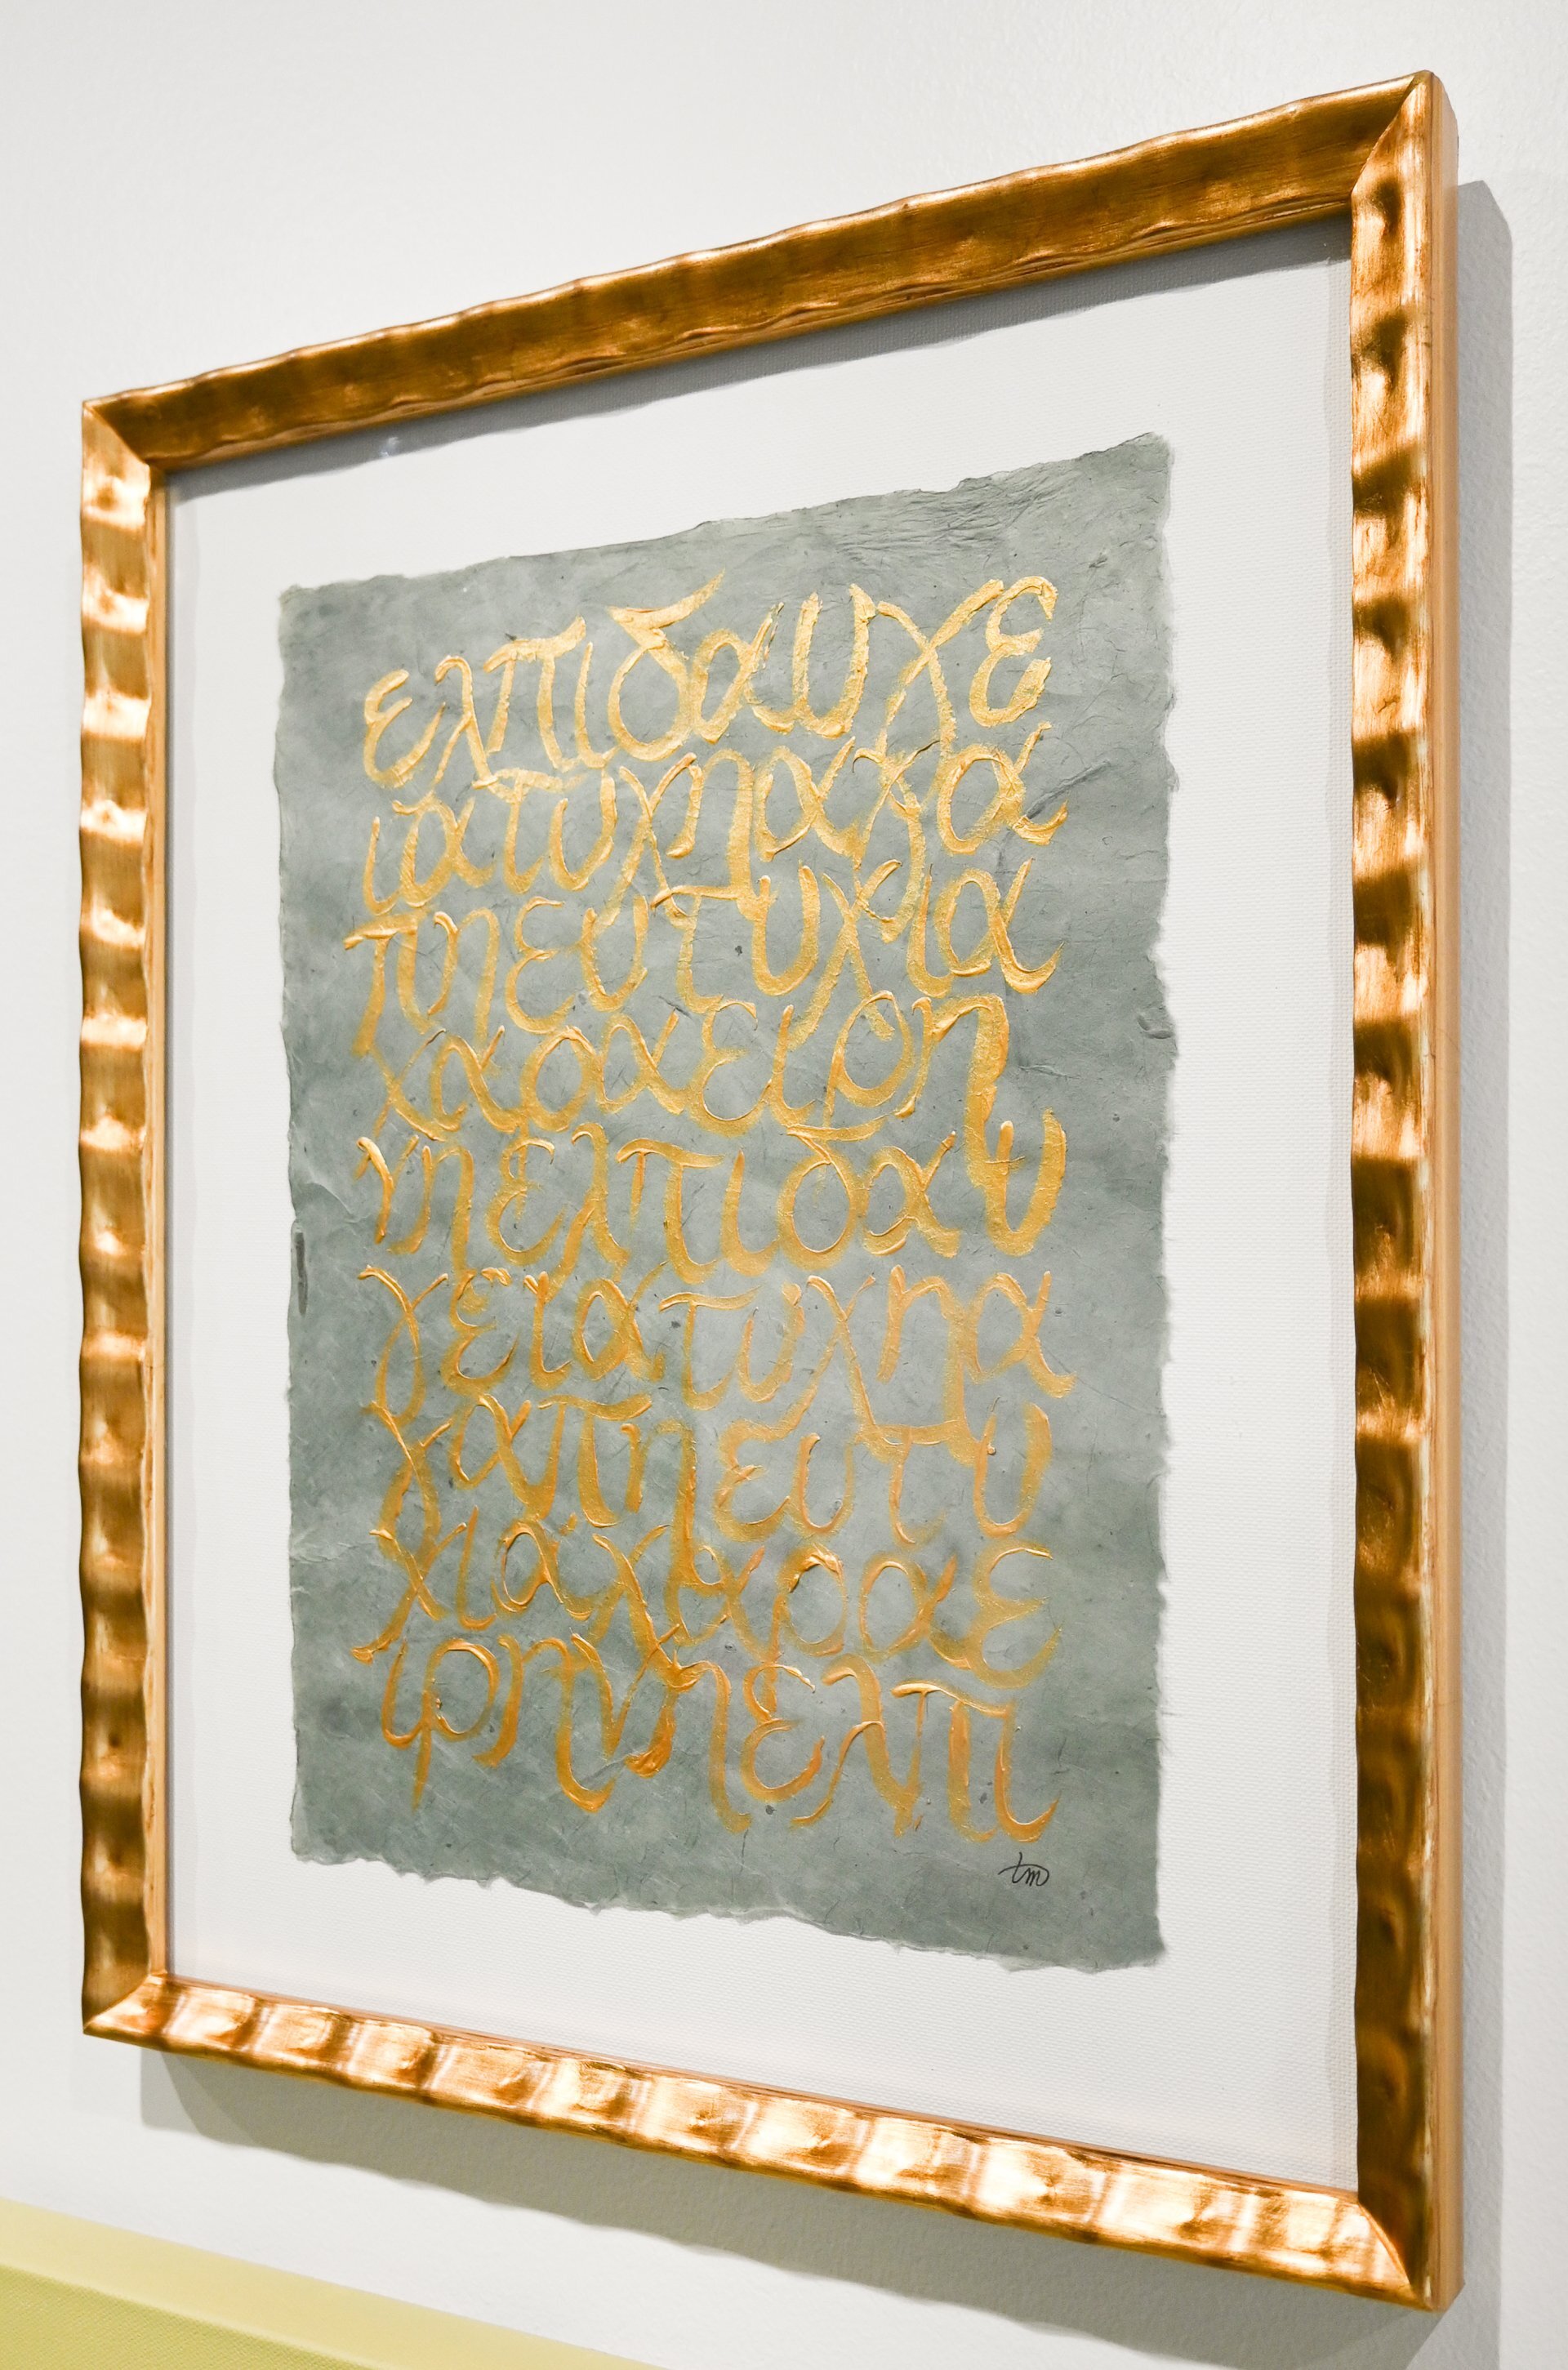 ελπιδαυγε
ιατυχηαγα
πηευτυχια
χαραειρη
νηελπιδαυ
γειατυχηα
γαπηευτυ
χιαχαραε
ιρηνηελπι
tm